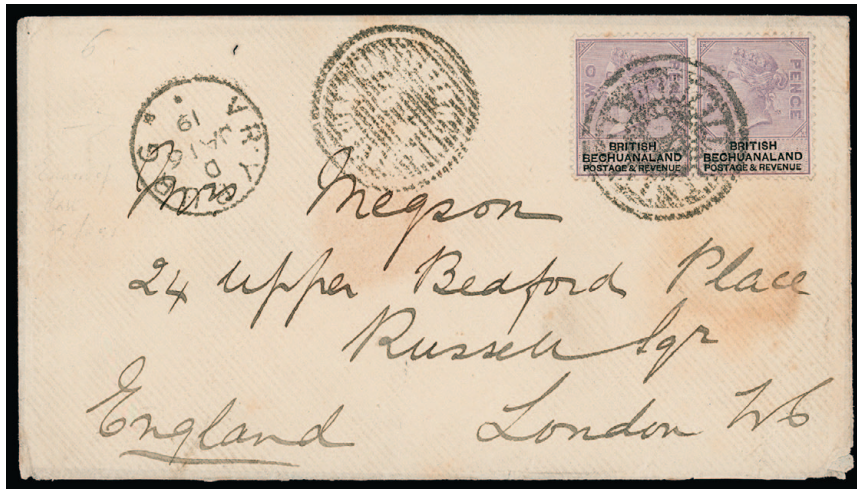 VRYBURG
D
JA 16
19
TWO PENCE
BRITISH
BECHUANALAND
POSTAGE & REVENUE
PENCE
BRITISH
BECHUANALAND
POSTAGE & REVENUE
Megson
24 Upper Bedford Place
Russell Sqr
London WC
England